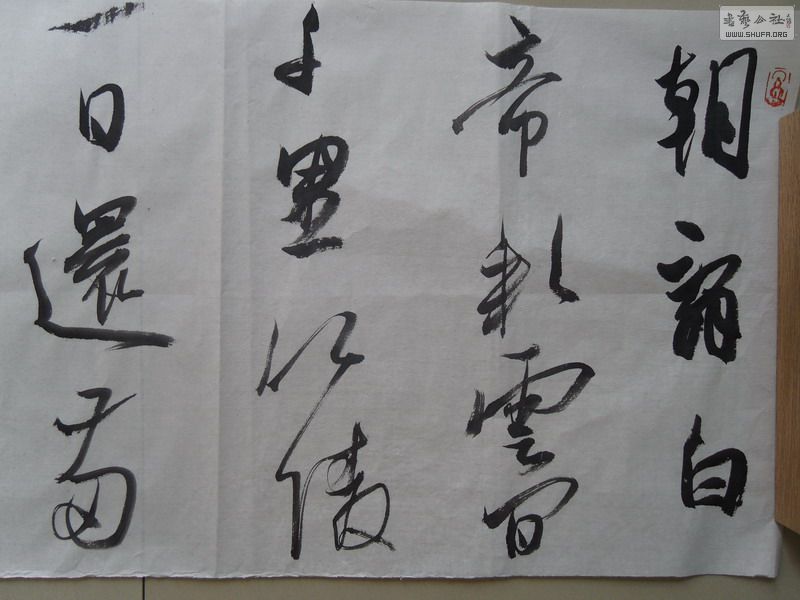 朝辭白
帝彩雲間
千里江陵
一日還兩
書藝公社
WWW.SHUFA.ORG